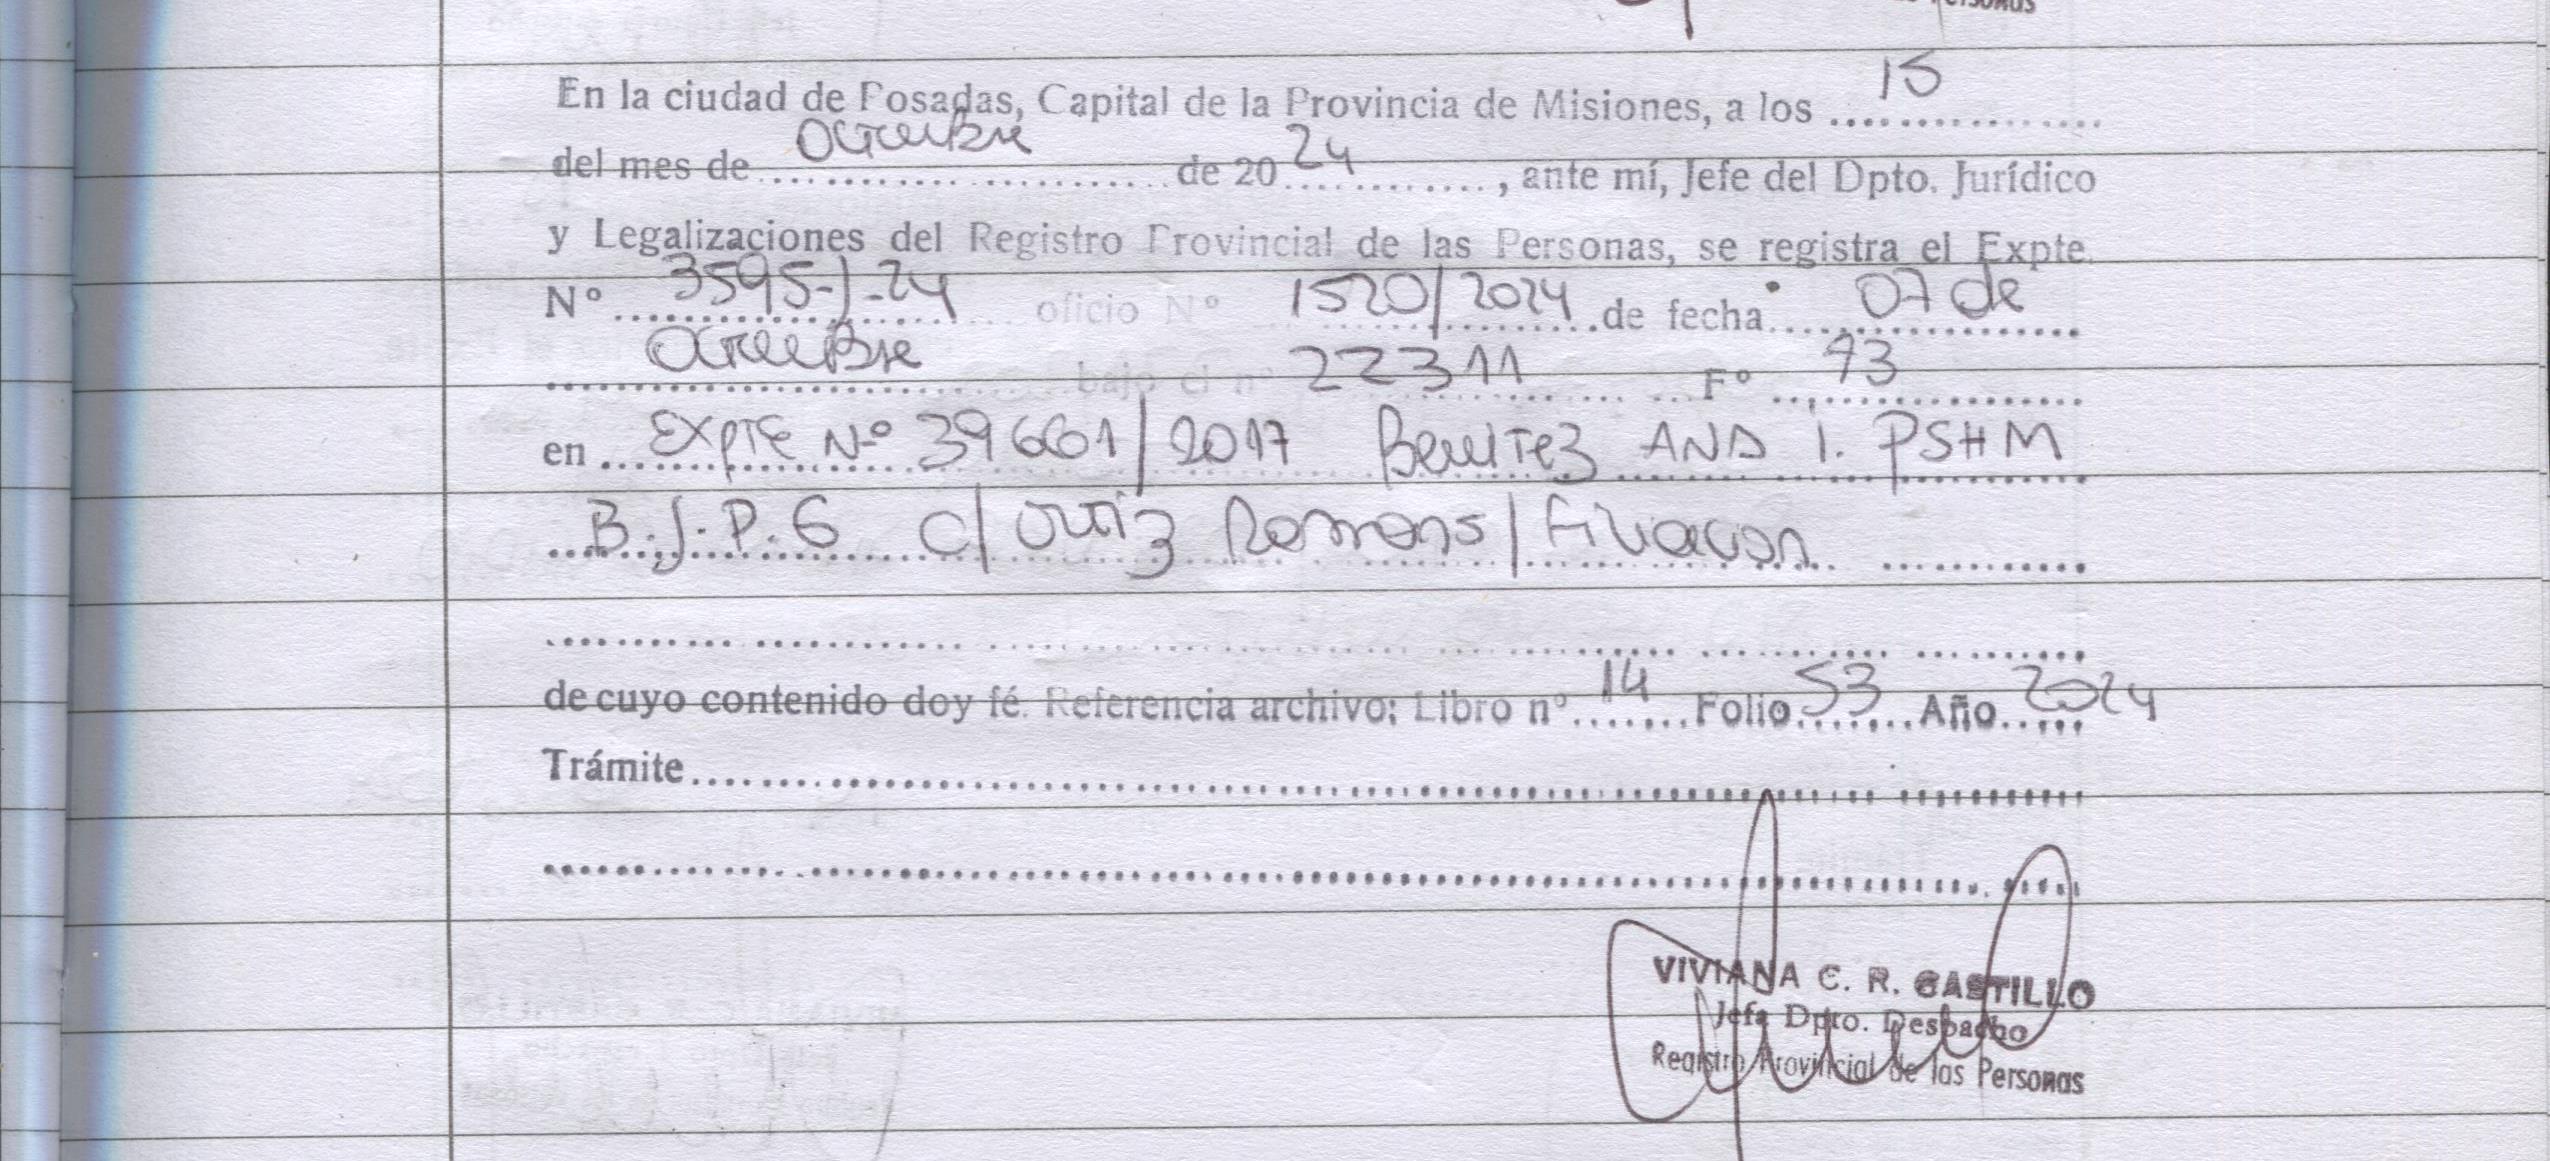 Personas
En la ciudad de Posadas, Capital de la Provincia de Misiones, a los 15
del mes de Octubre de 20 24, ante mí, Jefe del Dpto. Jurídico
y Legalizaciones del Registro Provincial de las Personas, se registra el Expte.
Nº 3595-J-24 oficio Nº 1520/2024 de fecha 07 de
Octubre bajo el nº 22311 Fº 73
en Expte Nº 39661/2017 Benitez ANA I. PSHM
B.J.P.G c/ Ortiz Ramon s/ Filiacion
de cuyo contenido doy fé. Referencia archivo: Libro nº 14 Folio 53 Año 2024
Trámite
VIVIANA C. R. CASTILLO
Jefa Dpto. Despacho
Registro Provincial de las Personas